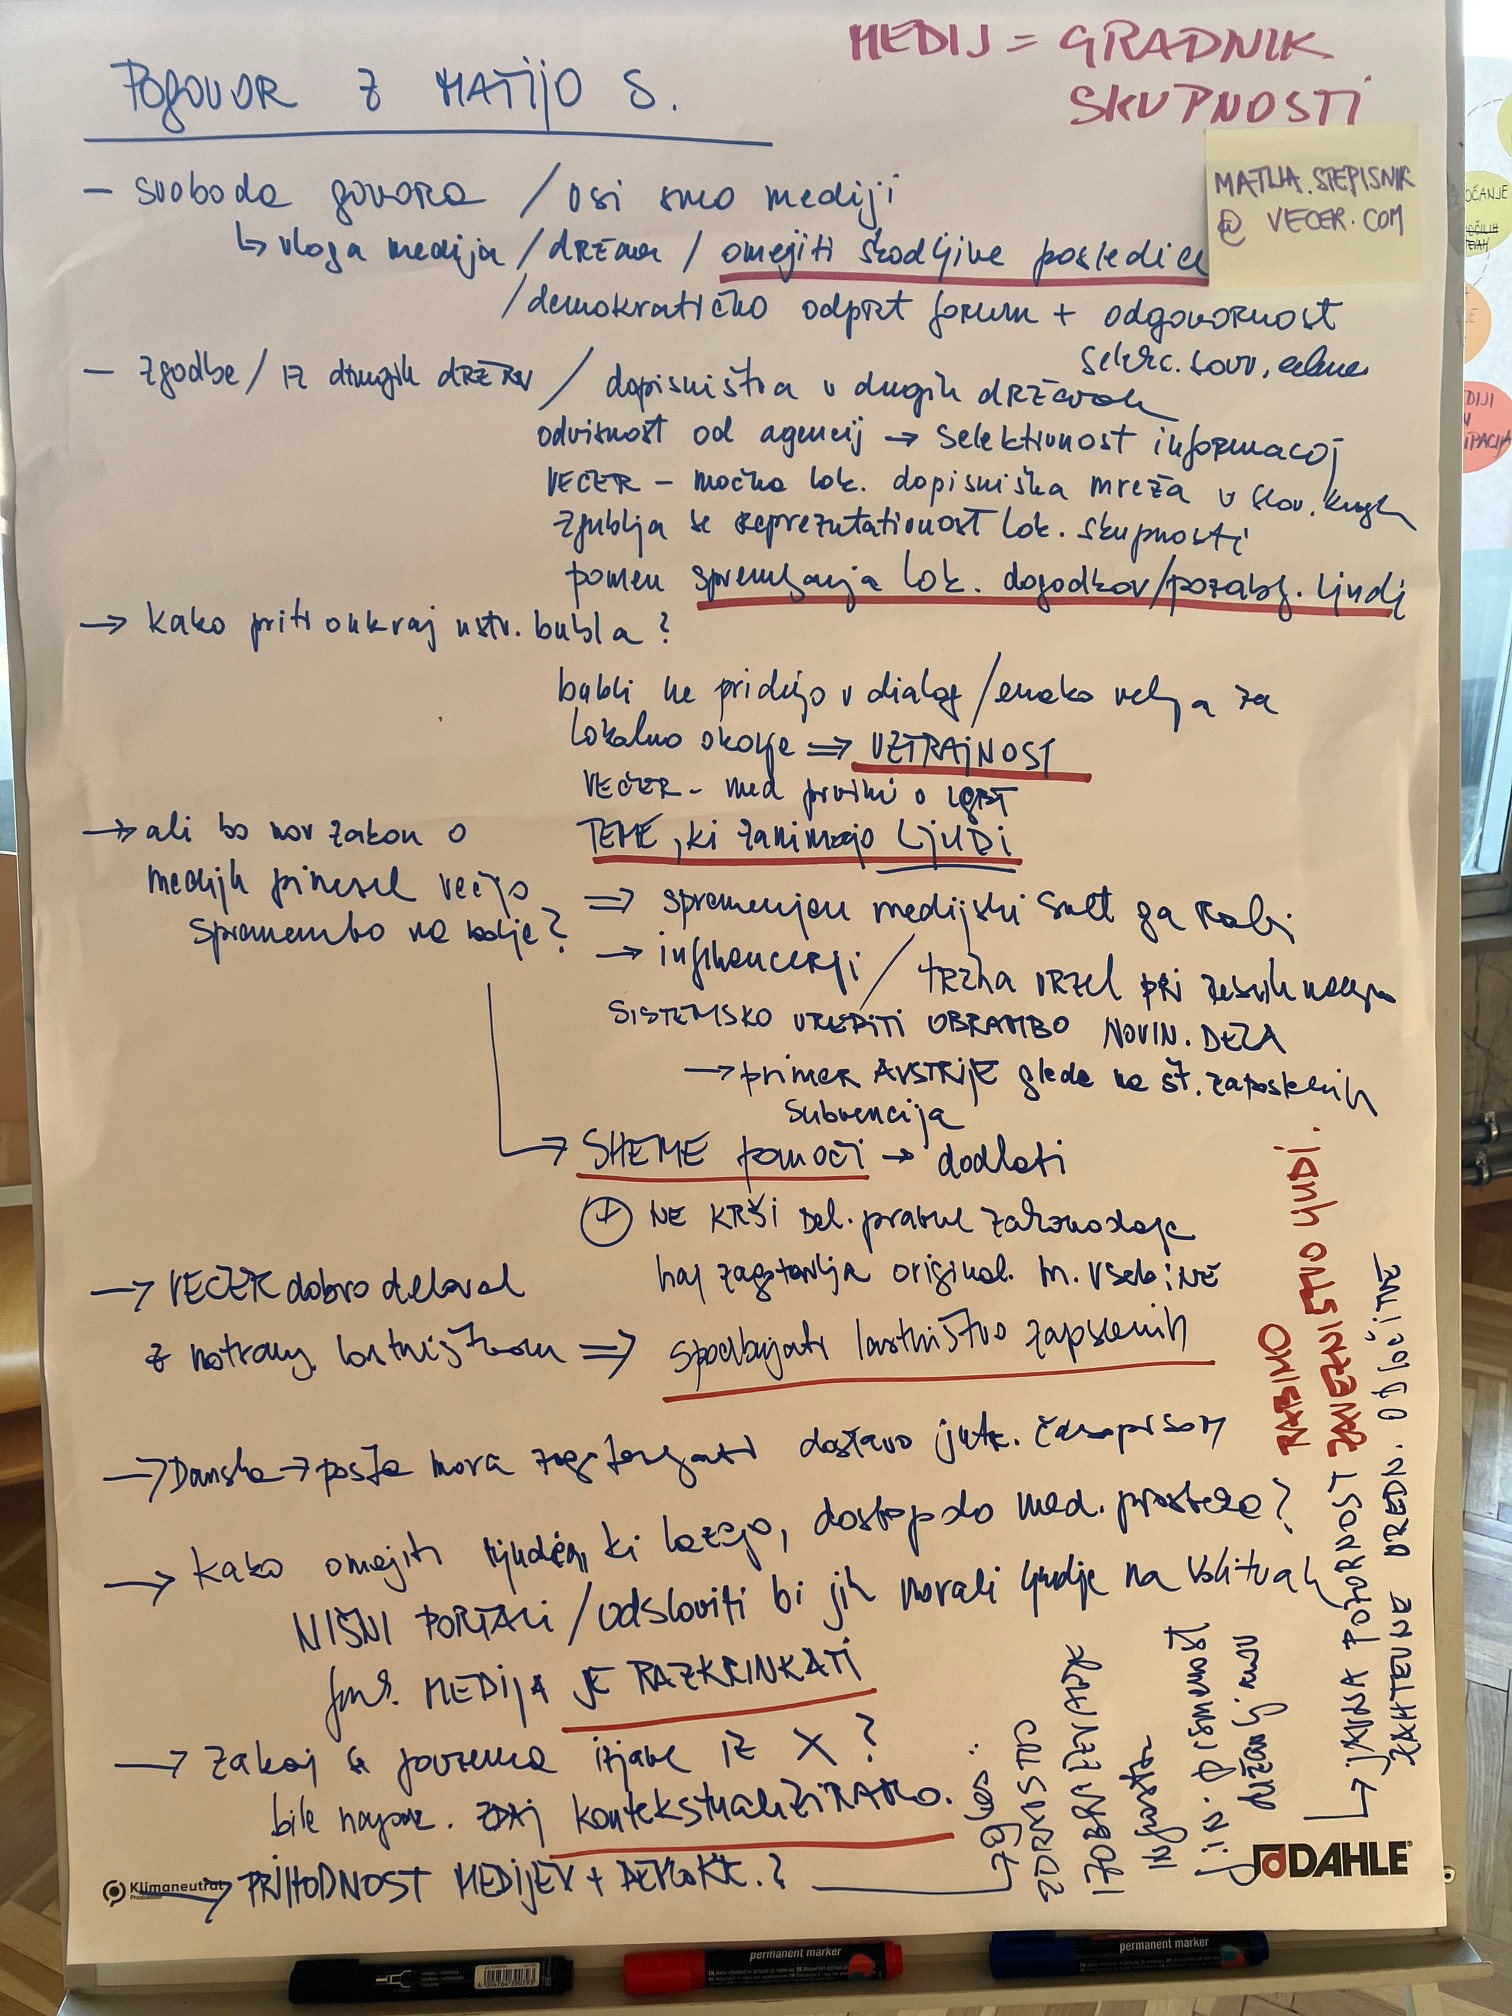 MEDIJ = GRADNIK
SKUPNOSTI
POGOVOR Z MATIJO S.
MATIJA.STEPISNIK
@ VECER.COM
- svoboda govora / vsi smo mediji
↳ vloga medija / država / omejiti škodljive posledice
/ demokratično odprt forum + odgovornost
- zgodbe / iz drugih držav / dopisništva v drugih državah
odvisnost od agencij → selektivnost informacij
VEČER - močna lok. dopisniška mreža v slov. krajih
zgublja se reprezentativnost lok. skupnosti
pomen spremljanja lok. dogodkov/pozab. ljudi
→ kako priti onkraj ustv. bubla?
bubli ne pridejo v dialog / enako velja za
lokalno okolje ⇒ VZTRAJNOST
VEČER - med prvimi o LGBT
TEME, ki zanimajo LJUDI
→ ali bo nov zakon o
medijih prinesel večjo
spremembo na bolje?
⇒ spremenjen medijski svet ga rabi
→ influencerji / tržna vrzel pri
SISTEMSKO UREDITI OBRAMBO NOVIN. DELA
→ primer AVSTRIJE glede na št. zaposlenih
subvencija
→ SHEME pomoči → dodelati
+ NE KRŠI del. pravne zakonodaje
naj zagotavlja original. m. vsebine
→ VEČER dobro deloval
z notranj. lastništvom ⇒ spodbujati lastništvo zaposlenih
→ Danska → pošta mora zagotavljati dostavo jutr. časopisom
→ kako omejiti ljudem, ki lažejo, dostop do med. prostora?
NIŠNI PORTALI / odsloviti bi jih morali ljudje na volitvah
funk. MEDIJA JE RAZKRINKATI
→ zakaj se povzema izjave iz X?
bile napake. ZDAJ kontekstualiZIRAMO.
→ PRIHODNOST MEDIJEV + DEMOKR.?
ZDRUŽ STVO
IZOBRAŽEVANJE
infrastr.
m. pismenost
→ JAVNA POZORNOST
ZAHTEVNE UREDN. ODLOČITVE
RABIMO
ZAVEZNIŠTVO LJUDI.
Klimaneutral
DAHLE®
permanent marker
permanent marker
OČANJE
DIJI